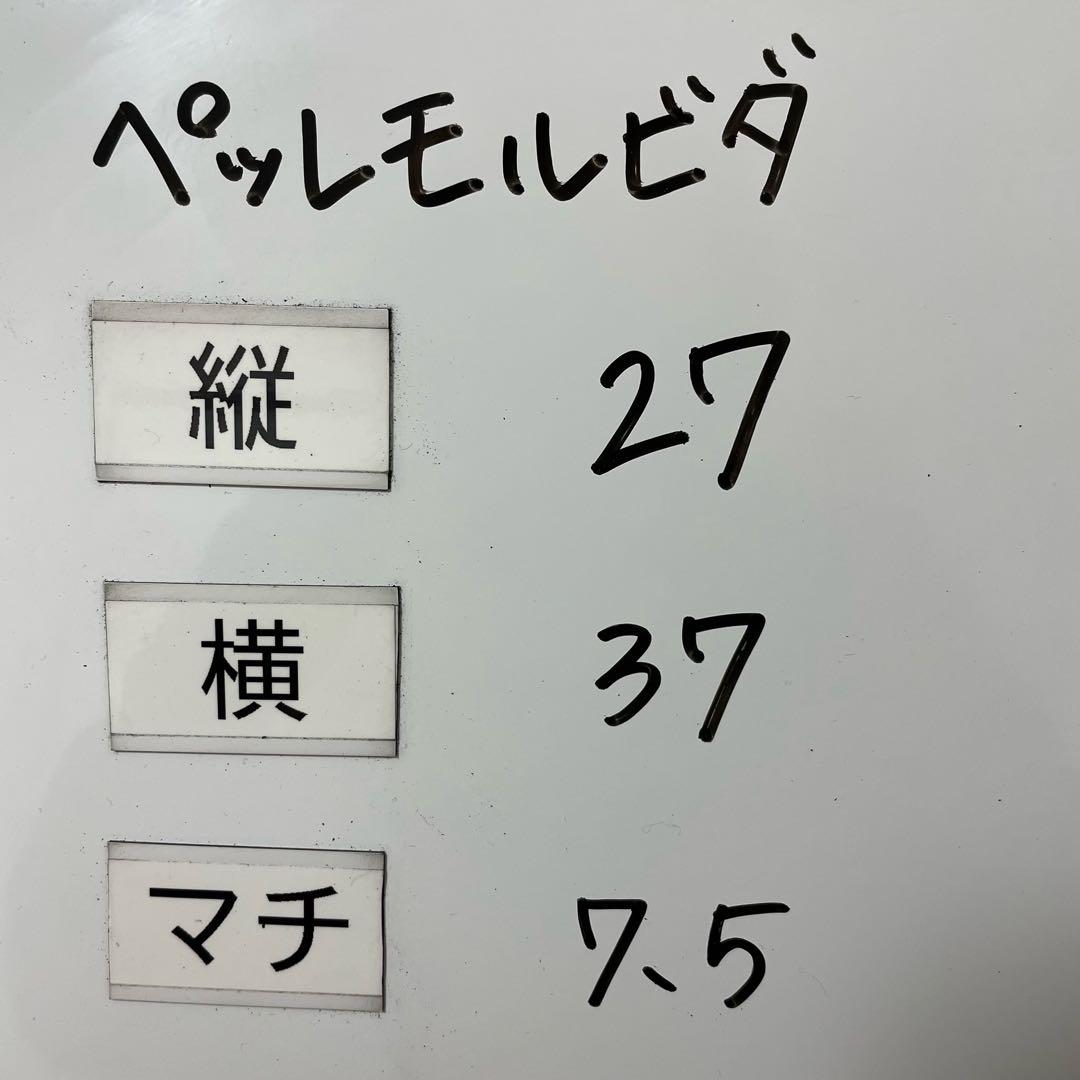 ペッレモルビダ
縦 27
横 37
マチ 7、5